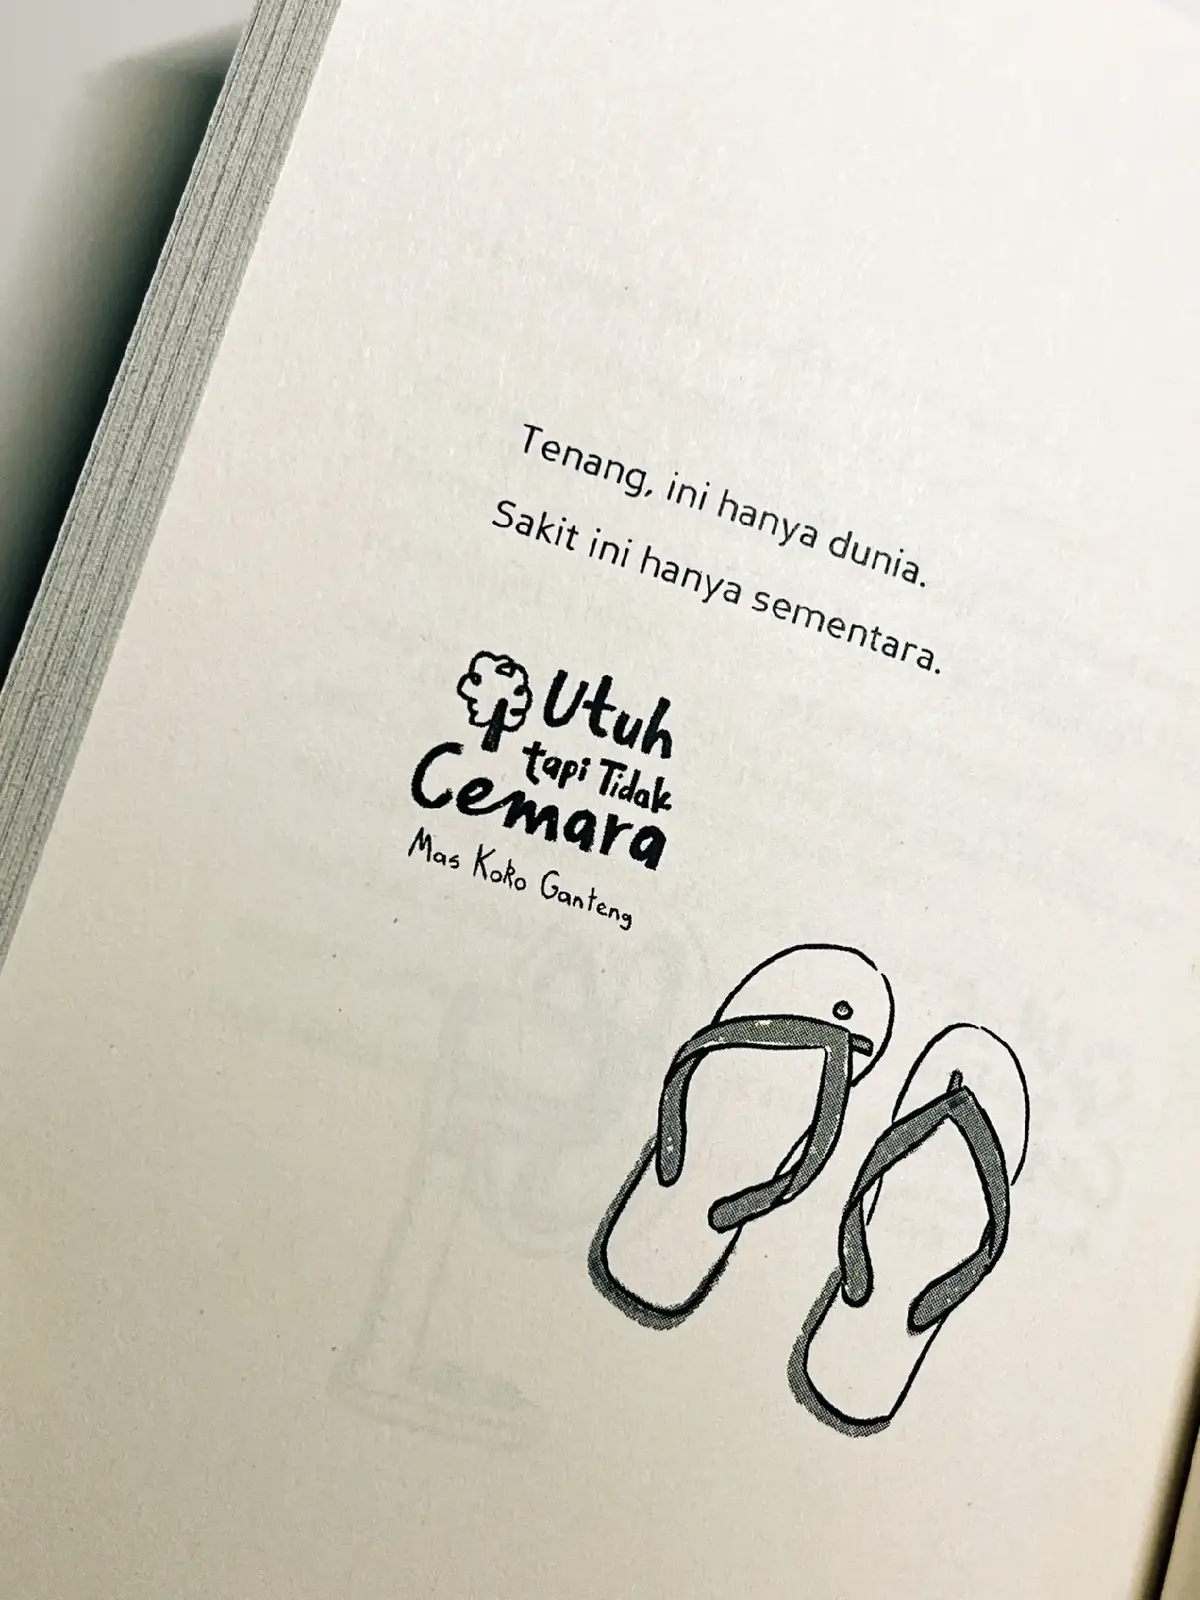 Tenang, ini hanya dunia.
Sakit ini hanya sementara.
Utuh
tapi Tidak
Cemara
Mas Koko Ganteng